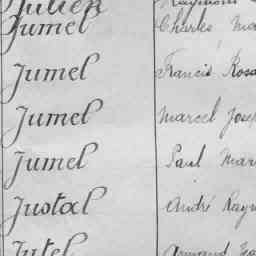 Julien Raymond
Jumel Charles Ma
Jumel Francis Rosa
Jumel Marcel Jose
Jumel Paul Mar
Justal André Raym
Jutel Armand